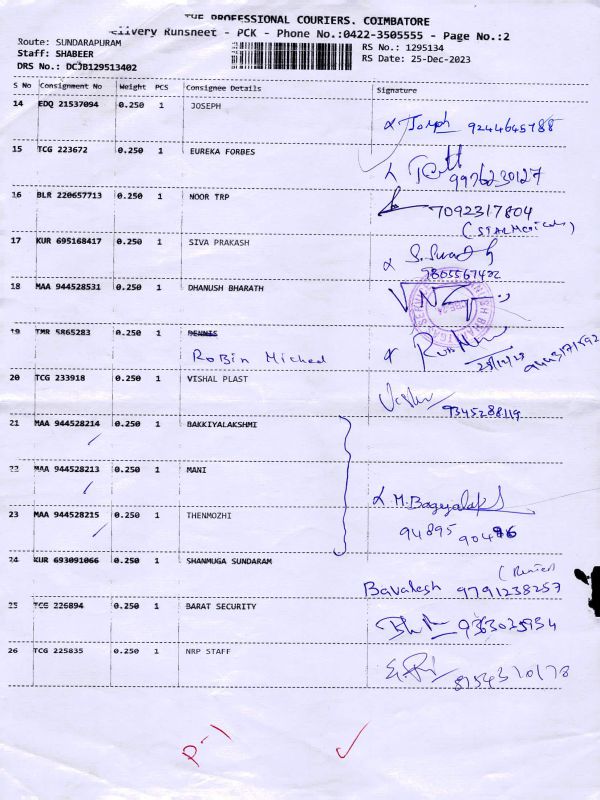 THE PROFESSIONAL COURIERS. COIMBATORE
Delivery Runsheet - PCK - Phone No.:0422-3505555 - Page No.:2
Route: SUNDARAPURAM
Staff: SHABEER
DRS No.: DCJB129513402
RS No.: 1295134
RS Date: 25-Dec-2023
S No Consignment No Weight PCS Consignee Details Signature
14 EDQ 21537094 0.250 1 JOSEPH
Joseph 9244645788
15 TCG 223672 0.250 1 EUREKA FORBES
9976230127
16 BLR 220657713 0.250 1 NOOR TRP
7092317804
(STAR Medicals)
17 KUR 695168417 0.250 1 SIVA PRAKASH
18 MAA 944528531 0.250 1 DHANUSH BHARATH
19 TMR 5865283 0.250 1 DENNIS
Robin Micheal
25/12/23
20 TCG 233918 0.250 1 VISHAL PLAST
9345288119
21 MAA 944528214 0.250 1 BAKKIYALAKSHMI
22 MAA 944528213 0.250 1 MANI
23 MAA 944528215 0.250 1 THENMOZHI
94895
24 KUR 693091066 0.250 1 SHANMUGA SUNDARAM
Bavalesh 9791238257
25 TCG 226894 0.250 1 BARAT SECURITY
26 TCG 225835 0.250 1 NRP STAFF
P-1